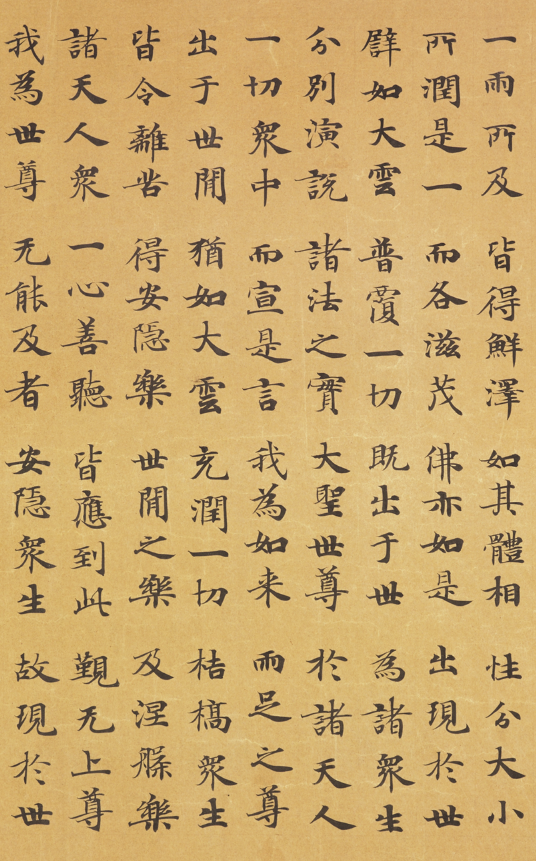 一雨所及 皆得鮮澤 如其體相 性分大小
所潤是一 而各滋茂 佛亦如是 出現於世
譬如大雲 普覆一切 既出于世 為諸衆生
分別演說 諸法之實 大聖世尊 於諸天人
一切衆中 而宣是言 我為如来 兩足之尊
出于世間 猶如大雲 充潤一切 枯槁衆生
皆令離苦 得安隱樂 世間之樂 及涅槃樂
諸天人衆 一心善聽 皆應到此 覲无上尊
我為世尊 无能及者 安隱衆生 故現於世